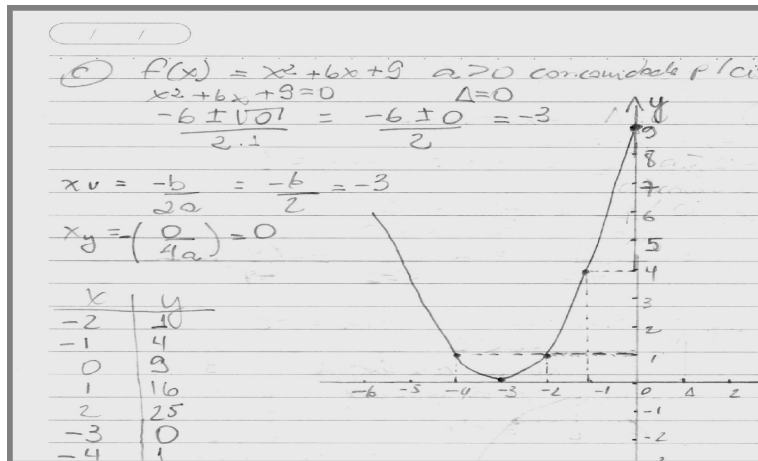 / /
c) f(x) = x² + 6x + 9 a>0 concavidade p/ ci
x² + 6x + 9 = 0 Δ=0
-6 ± √0 / 2.1 = -6 ± 0 / 2 = -3
xv = -b / 2a = -6 / 2 = -3
xy = -(0 / 4a) = 0
x | y
-2 | 10
-1 | 4
0 | 9
1 | 16
2 | 25
-3 | 0
-4 | 1
y
9
8
7
6
5
4
3
2
1
-6 -5 -4 -3 -2 -1 0 1 2
-1
-2